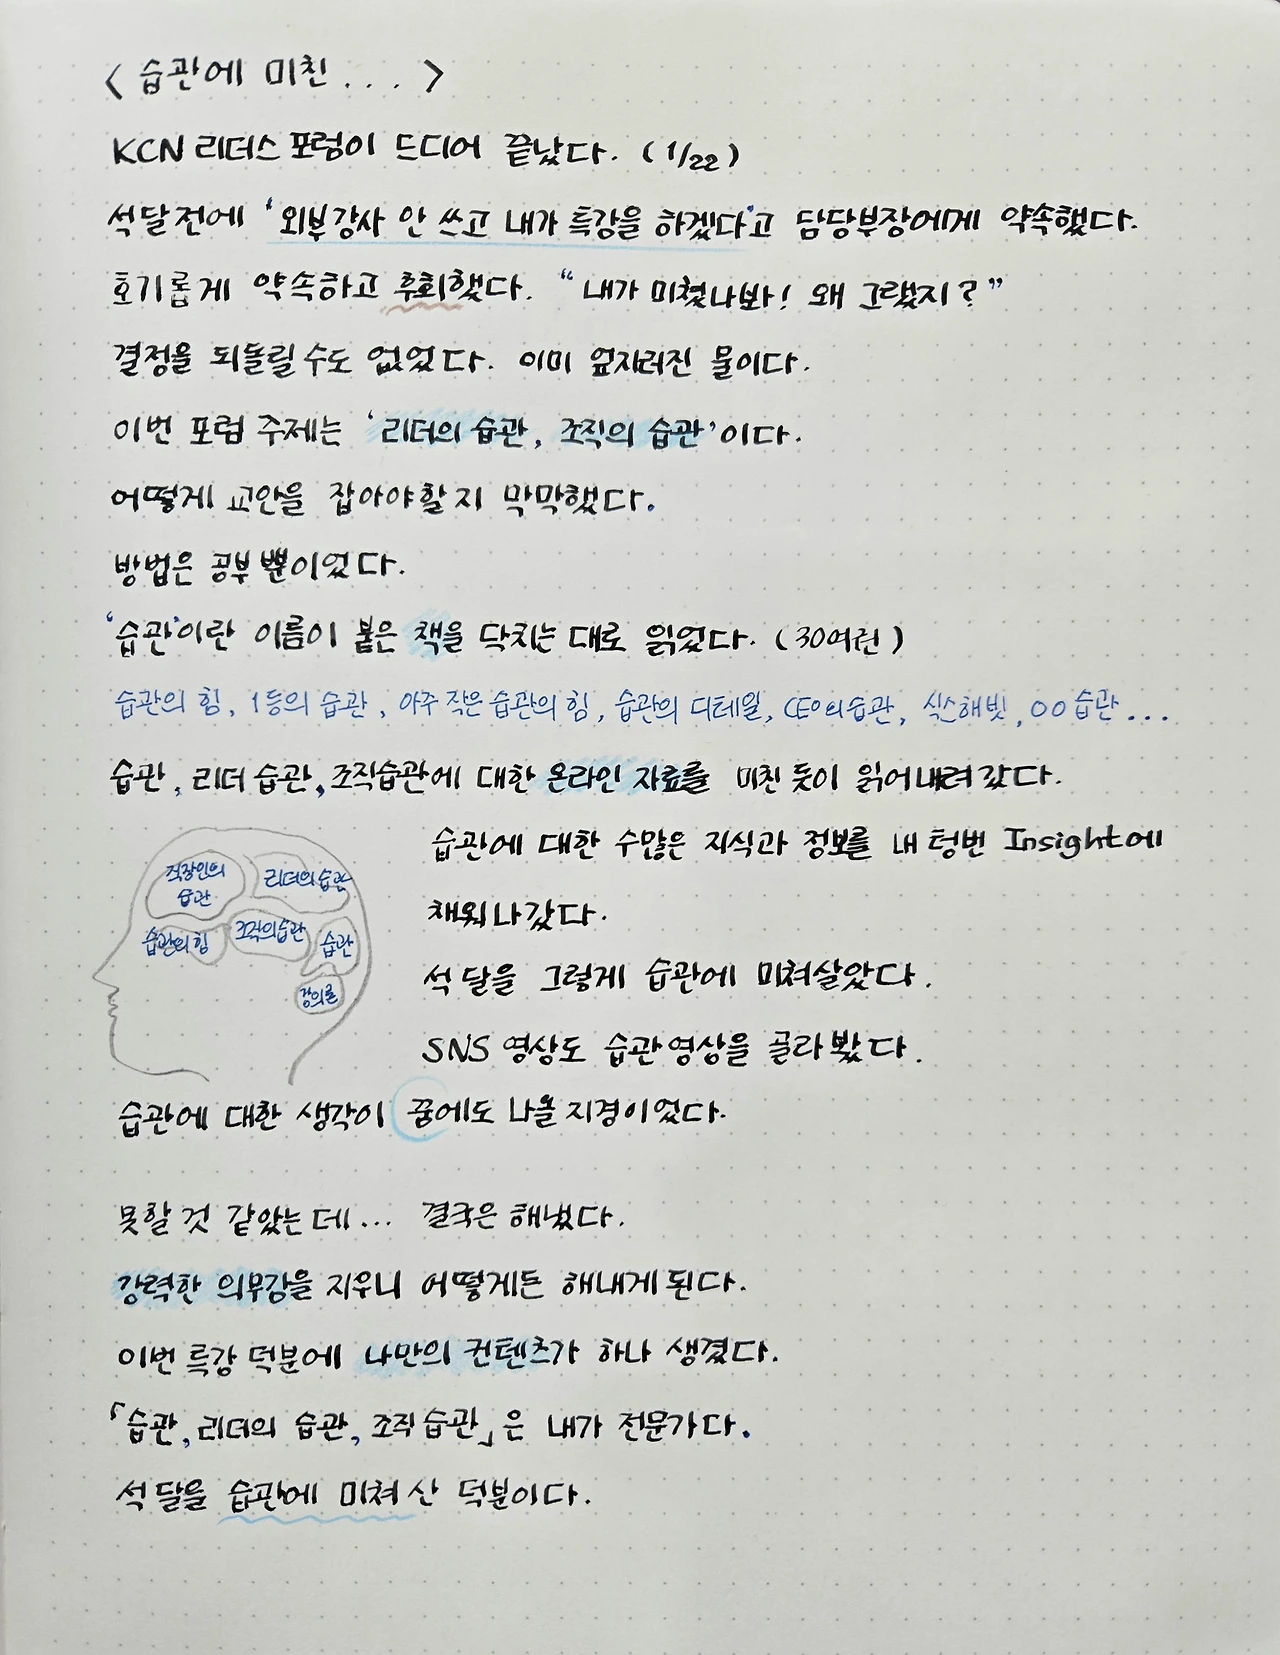 < 습관에 미친 . . . . >
KCN 리더스 포럼이 드디어 끝났다. (1/22)
석달전에 '외부강사 안 쓰고 내가 특강을 하겠다'고 담당부장에게 약속했다.
호기롭게 약속하고 후회했다. "내가 미쳤나봐! 왜 그랬지?"
결정을 되돌릴 수도 없었다. 이미 엎지러진 물이다.
이번 포럼 주제는 '리더의 습관, 조직의 습관'이다.
어떻게 교안을 잡아야할지 막막했다.
방법은 공부 뿐이었다.
'습관'이란 이름이 붙은 책을 닥치는 대로 읽었다. (30여권)
습관의 힘, 1등의 습관, 아주 작은 습관의 힘, 습관의 디테일, CEO의 습관, 식스해빗, OO습관...
습관, 리더 습관, 조직습관에 대한 온라인 자료를 미친 듯이 읽어내려갔다.
습관에 대한 수많은 지식과 정보를 내 텅빈 Insight에
채워나갔다.
석 달을 그렇게 습관에 미쳐살았다.
SNS 영상도 습관영상을 골라봤다.
직장인의 습관
리더의 습관
습관의 힘
조직의 습관
습관
강의론
습관에 대한 생각이 꿈에도 나올 지경이었다.
못할 것 같았는데... 결국은 해냈다.
강력한 의무감을 지우니 어떻게든 해내게 된다.
이번 특강 덕분에 나만의 컨텐츠가 하나 생겼다.
「습관, 리더의 습관, 조직 습관」은 내가 전문가다.
석 달을 습관에 미쳐 산 덕분이다.